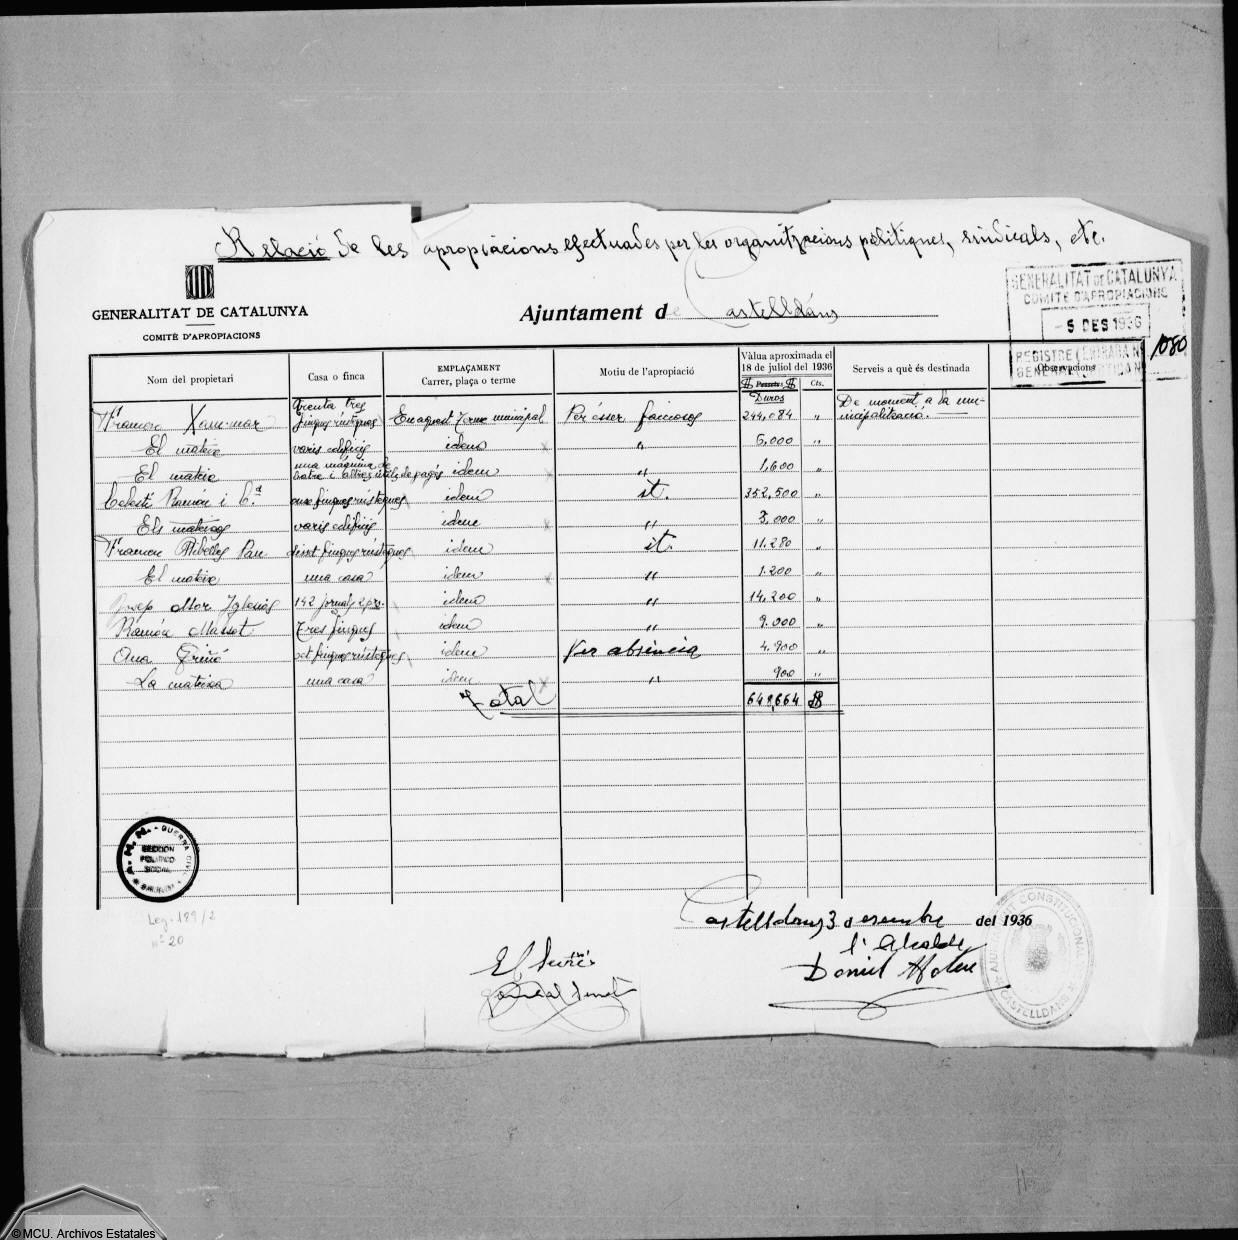 Relació de les apropiacions efectuades per les organitzacions polítiques, sindicals, etc.
GENERALITAT DE CATALUNYA
COMITÈ D'APROPIACIONS
Ajuntament de Castelldáns
GENERALITAT DE CATALUNYA
COMITÈ D'APROPIACIONS
- 5 DES 1936
REGISTRE ENTRADA Nº
GENERAL
1080
Nom del propietari
Casa o finca
EMPLAÇAMENT
Carrer, plaça o terme
Motiu de l'apropiació
Vàlua aproximada el
18 de juliol del 1936
Pessetes Cts.
Duros
Serveis a què és destinada
Observacions
Xam-mar trenta tres finques rústeques En aquest Terme municipal Per ésser facciosos 244,084 „ De moment a la mu-
nicipalització.
El mateix varis edificis idem „ 5,000 „
El mateix una máquina de batre i altres útils de pagés idem „ 1,600 „
Celestí Ramón i Cª. finques rústeques idem it. 352,500 „
Els mateixos varis edificis idem „ 3,000 „
Ribelles Pau finques rústeques idem it. 11.280 „
El mateix una casa idem „ 1.200 „
Josep Mor Iglesias 142 jornals idem „ 14,200 „
Ramón Massot Tres finques idem „ 9.000 „
Ana Griñó set finques rústeques idem Per absència 4.900 „
La mateixa una casa idem „ 900 „
Total 64
A. H. N. - GUERRA CIVIL
SECCION
POLITICO
SOCIAL
Leg. 189/2
nº 20
Castelldans, 3 desembre del 1936
l'Alcalde
Daniel
El
AJUNTAMENT CONSTITUCIONAL
CASTELLDANS
© MCU. Archivos Estatales